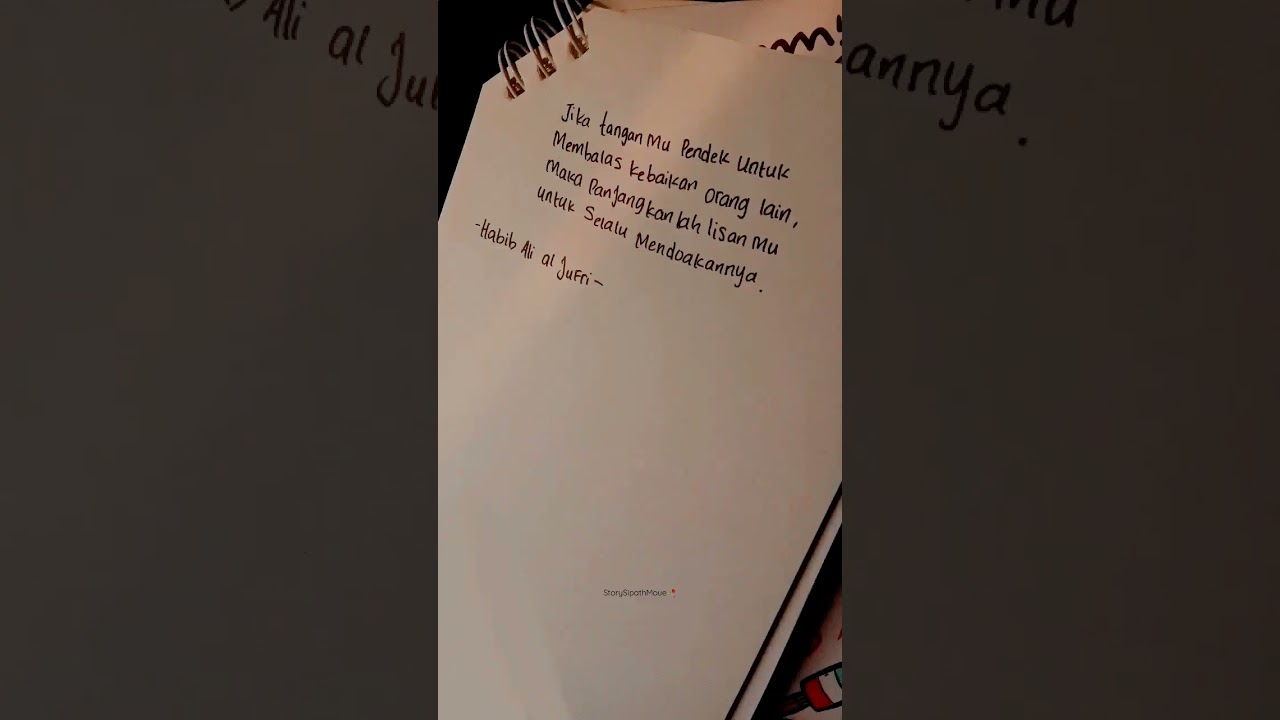 Jika tangan mu Pendek Untuk
Membalas kebaikan orang lain,
Maka Panjangkanlah lisan mu
untuk Selalu Mendoakannya.
-Habib Ali al Jufri-
StorySipathMoue